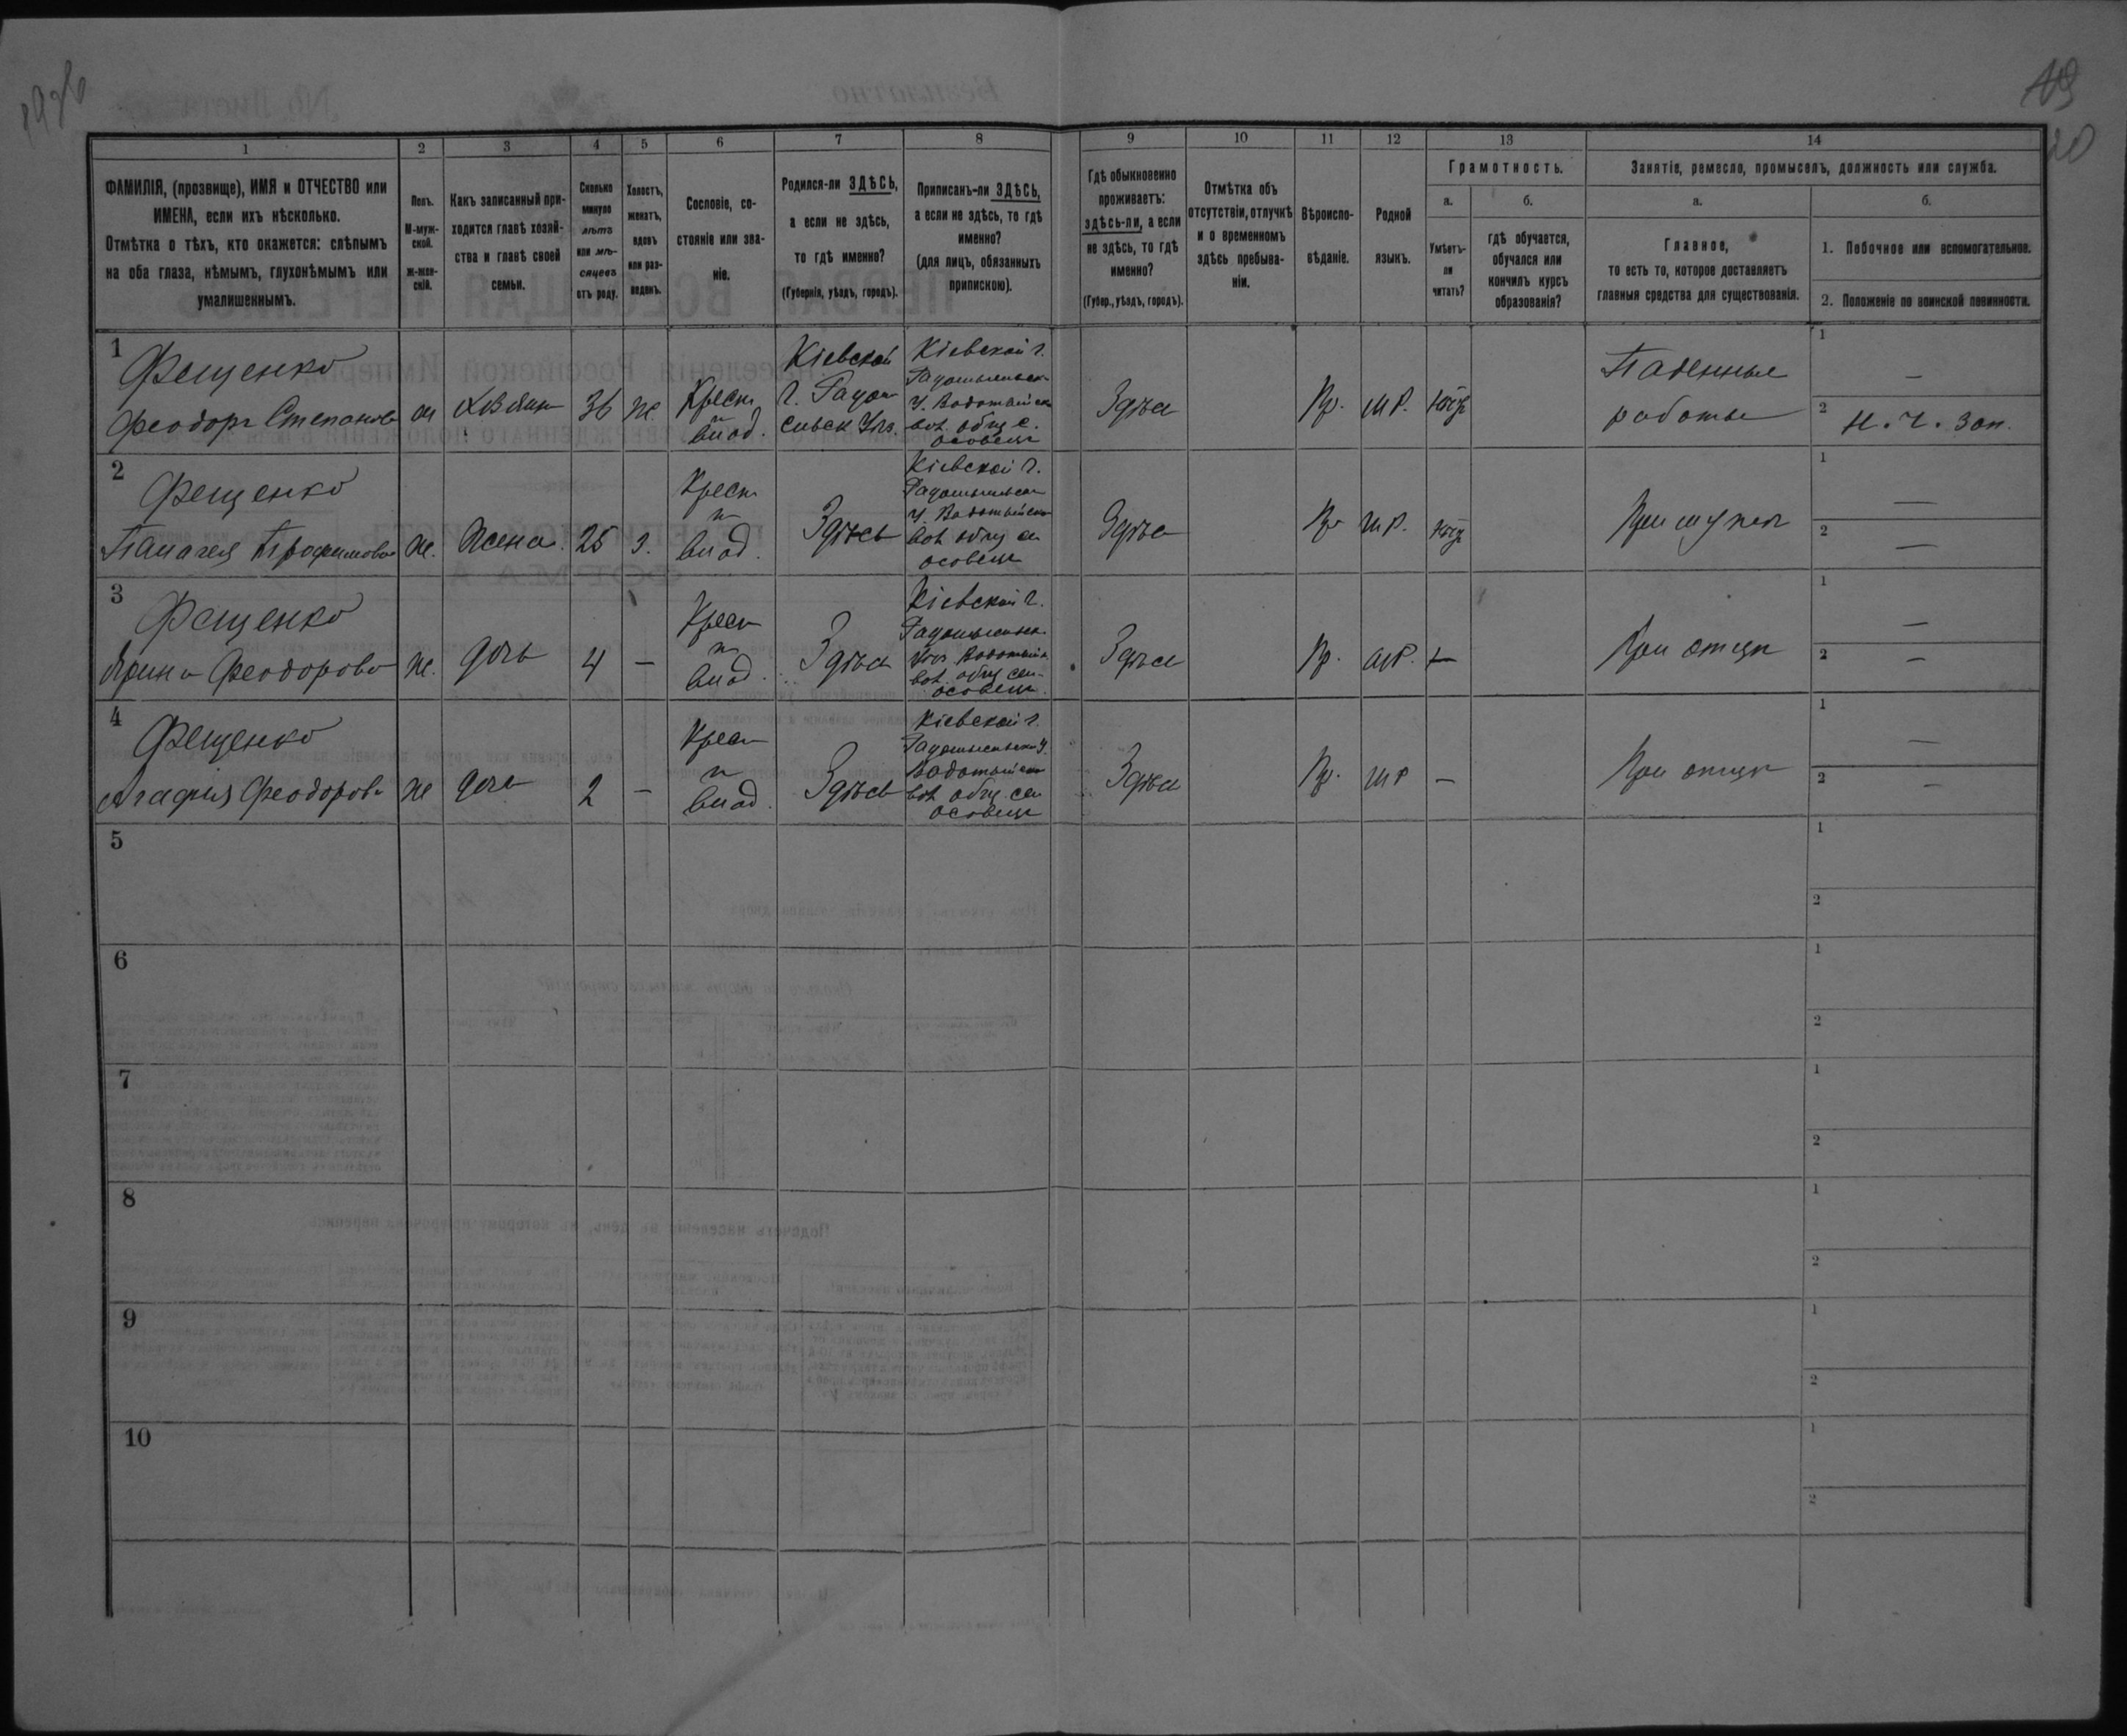 19
20
1 2 3 4 5 6 7 8 9 10 11 12 13 14
ФАМИЛІЯ, (прозвище), ИМЯ и ОТЧЕСТВО или
ИМЕНА, если ихъ нѣсколько.
Отмѣтка о тѣхъ, кто окажется: слѣпымъ
на оба глаза, нѣмымъ, глухонѣмымъ или
умалишеннымъ.
Полъ.
М-муж-
ской.
Ж-жен-
скій.
Какъ записанный при-
ходится главѣ хозяй-
ства и главѣ своей
семьи.
Сколько
минуло
лѣтъ
или мѣ-
сяцевъ
отъ роду.
Холостъ,
женатъ,
вдовъ
или раз-
веденъ.
Сословіе, со-
стояніе или зва-
ніе.
Родился-ли ЗДѢСЬ,
а если не здѣсь,
то гдѣ именно?
(Губернія, уѣздъ, городъ).
Приписанъ-ли ЗДѢСЬ,
а если не здѣсь, то гдѣ
именно?
(для лицъ, обязанныхъ
припискою).
Гдѣ обыкновенно
проживаетъ:
здѣсь-ли, а если
не здѣсь, то гдѣ
именно?
(Губер., уѣздъ, городъ).
Отмѣтка объ
отсутствіи, отлучкѣ
и о временномъ
здѣсь пребыва-
ніи.
Вѣроиспо-
вѣданіе.
Родной
языкъ.
Грамотность.
а.
Умѣетъ-
ли
читать?
б.
гдѣ обучается,
обучался или
кончилъ курсъ
образованія?
Занятіе, ремесло, промыселъ, должность или служба.
а.
Главное,
то есть то, которое доставляетъ
главныя средства для существованія.
б.
1. Побочное или вспомогательное.
2. Положеніе по воинской повинности.
1
Фещенко
Феодоръ Степановъ
м
Хозяин
36
ж.
Крест.
влад.
Кіевской
г.
Кіевской г.
У.
вол. общ с.
особецъ
Здѣсь
Пр.
мр.
нѣт
Паденныя
работы
1 —
2 н. ч. зап.
2
Фещенко
Палагея Трофимова
ж.
Жена
25
з.
Крест
влад.
Здѣсь
Кіевской г.
У.
вол общ
особецъ
Здѣсь
Пр
мр.
нѣт
При мужѣ
1 —
2 —
3
Фещенко
Ярина Феодорова
ж.
дочь
4
—
Крест
влад.
Здѣсь
Кіевской г.
вол. общ
особецъ
Здѣсь
Пр.
мр.
—
При отцѣ
1 —
2 —
4
Фещенко
Агафия Феодорова
ж
дочь
2
—
Крест
влад.
Здѣсь
Кіевской г.
вол общ
особецъ
Здѣсь
Пр.
мр
—
При отцѣ
1 —
2 —
5
1
2
6
1
2
7
1
2
8
1
2
9
1
2
10
1
2